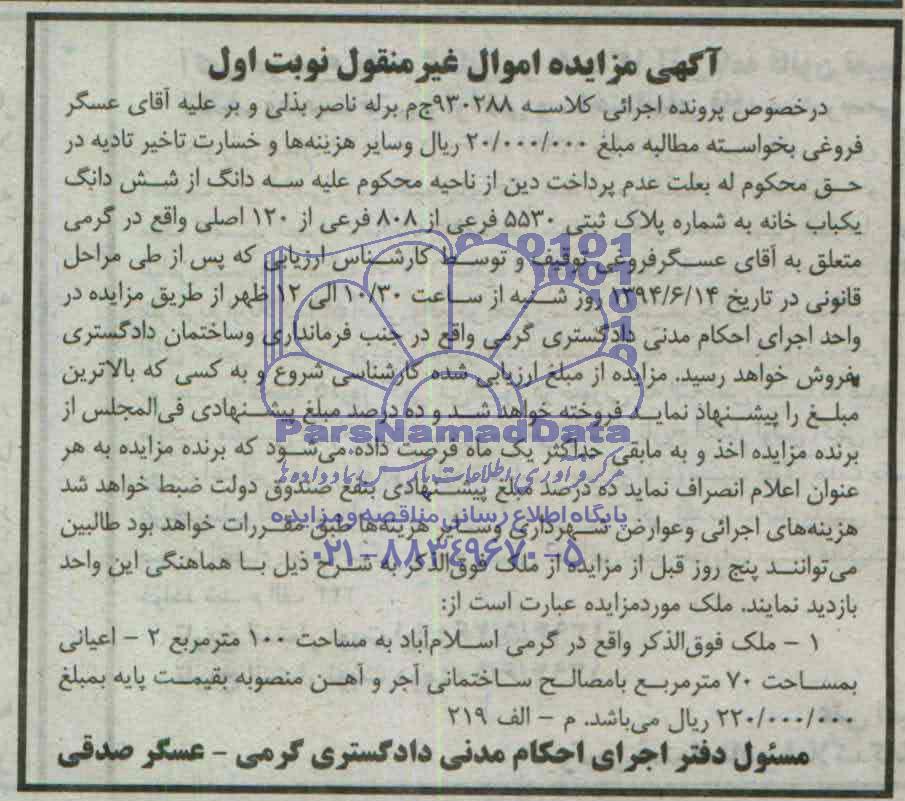 آگهی مزایده اموال غیرمنقول نوبت اول
درخصوص پرونده اجرائی کلاسه ۹۳۰۲۸۸ج‌م برله ناصر بذلی و بر علیه آقای عسگر
فروغی بخواسته مطالبه مبلغ ۲۰/۰۰۰/۰۰۰ ریال وسایر هزینه‌ها و خسارت تاخیر تادیه در
حق محکوم له بعلت عدم پرداخت دین از ناحیه محکوم علیه سه دانگ از شش دانگ
یکباب خانه به شماره پلاک ثبتی ۵۵۳۰ فرعی از ۸۰۸ فرعی از ۱۲۰ اصلی واقع در گرمی
متعلق به آقای عسگرفروغی توقیف و توسط کارشناس ارزیابی که پس از طی مراحل
قانونی در تاریخ ۱۳۹۴/۶/۱۴ روز شنبه از ساعت ۱۰/۳۰ الی ۱۲ ظهر از طریق مزایده در
واحد اجرای احکام مدنی دادگستری گرمی واقع در جنب فرمانداری وساختمان دادگستری
بفروش خواهد رسید. مزایده از مبلغ ارزیابی شده کارشناسی شروع و به کسی که بالاترین
مبلغ را پیشنهاد نماید فروخته خواهد شد و ده درصد مبلغ پیشنهادی فی‌المجلس از
ParsNamadData
برنده مزایده اخذ و به مابقی حداکثر یک ماه فرصت داده‌می‌شود که برنده مزایده به هر
مرکز فرآوری اطلاعات پارس نماد داده‌ها
عنوان اعلام انصراف نماید ده درصد مبلغ پیشنهادی بنفع صندوق دولت ضبط خواهد شد
پایگاه اطلاع رسانی مناقصه و مزایده
هزینه‌های اجرائی وعوارض شهرداری وسایر هزینه‌ها طبق مقررات خواهد بود طالبین
۰۲۱-۸۸۳۴۹۶۷۰-۵
می‌توانند پنج روز قبل از مزایده از ملک فوق‌الذکر به شرح ذیل با هماهنگی این واحد
بازدید نمایند. ملک موردمزایده عبارت است از:
۱ – ملک فوق‌الذکر واقع در گرمی اسلام‌آباد به مساحت ۱۰۰ مترمربع ۲ – اعیانی
بمساحت ۷۰ مترمربع بامصالح ساختمانی آجر و آهن منصوبه بقیمت پایه بمبلغ
۲۲۰/۰۰۰/۰۰۰ ریال می‌باشد. م – الف ۲۱۹
مسئول دفتر اجرای احکام مدنی دادگستری گرمی – عسگر صدقی